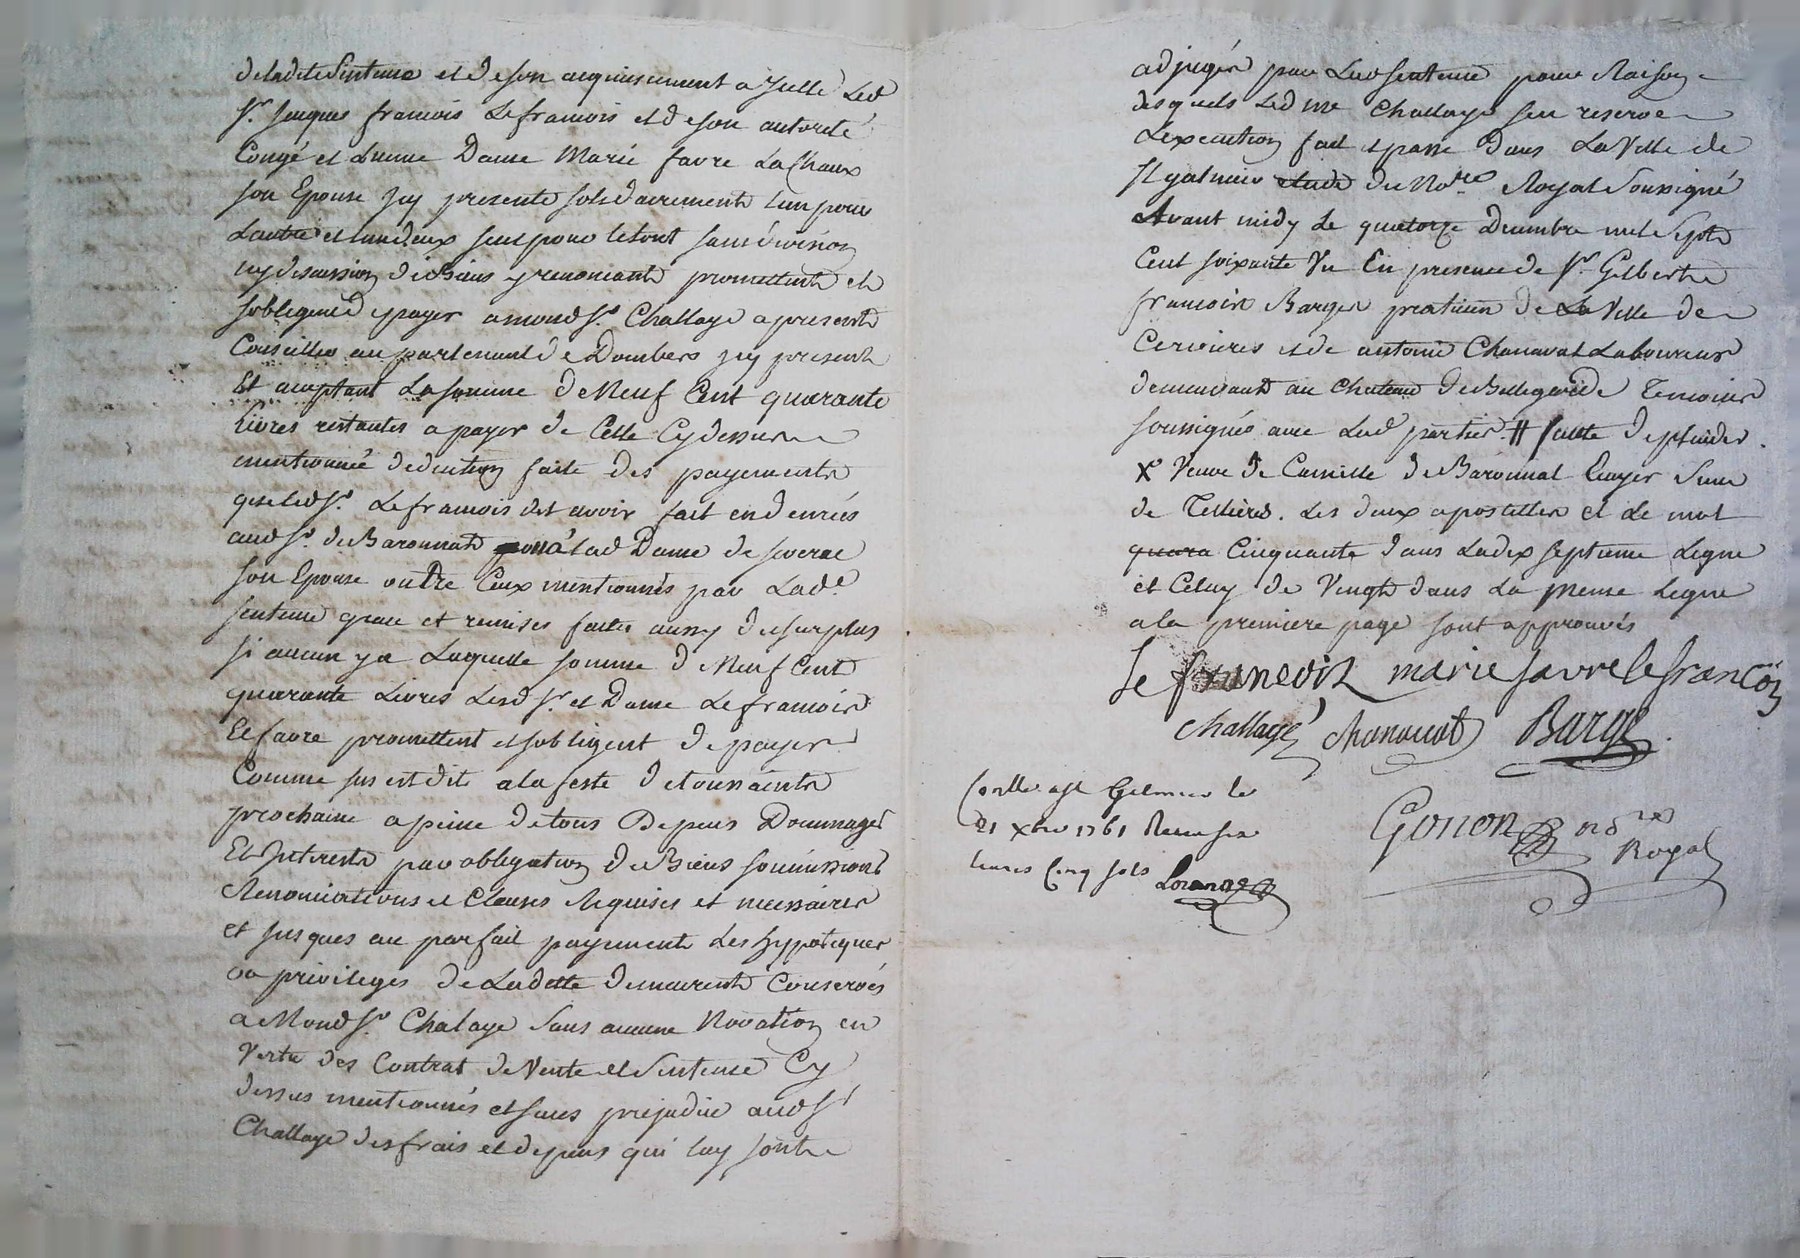 de ladite Sentence et de son acquiescement a Icelle Led
Sr. Jacques francois Lefrancois et de son autorité
Congé et Licence Dame Marie favre La Chaux
son Epouse Icy presente solidairement lun pour
Lautre et un deux seul pour le tout sans division
ny discussion de Biens y renoncants promettent et
sobligent de payer a mond Sr. Challaye a present
Conseiller au parlement de Dombes Icy present
Et acceptant La somme de Neuf Cent quarante
livres restantes a payer de Celle Cy dessus
mentionnée deduction faite des payements
que led Sr. Lefrancois dit avoir fait en denrées
aud Sr. de Baronnat ou a lad Dame de
son Epouse outre Ceux mentionnés par Lade.
sentence grace et remises faites aussy du surplus
si aucun y a Laquelle somme de Neuf Cent
quarante Livres Lesd Sr. et Dame Lefrancois
Et favre promettent et sobligent de payer
Comme sus est dit a la feste de toussaints
prochaine a peine de tous Depens Dommages
Et Interests par obligation de Biens soumissions
Renonciations et Clauses Requises et necessaires
et jusques au parfait payement Les hypoteques
ou privileges de Ladette demeurent Conservés
a Mond Sr. Chalaye Sans aucune Novation en
Vertu des Contrat de Vente et Sentence Cy
dessus mentionnés et sans prejudice aud Sr
Challaye des frais et depens qui luy sont
adjugés par Lad sentence pour Raison
desquels Led me Challaye sen reserve
Lexecution fait et passé dans La Ville de
St galmier etude du Nore. Royal Soussigné
Avant midy Le quatorze Decembre mil Sept
Cent soixante Un En presence de Sr. Gilbert
francois Barge praticien de La Ville de
Cervieres et de antoine Chanavat Laboureur
demeurant au Chateau de Bellegarde Temoins
soussignés avec Lesd parties. # faute de plaider.
X Veuve de Camille de Baronnat Ecuyer Sieur
de Tellieres. Les deux apostilles et Le mot
quara Cinquante dans La dix septieme Legne
et Celuy de Vingt dans La meme Legne
a la premiere page sont approuvés
Le francois marie favre lefrancois
Challaye Chanavat Barge
Conllé a St Gelmier le
21 Xbre 1761 Receu six
livres Cinq sols
Gonon nore
Royal